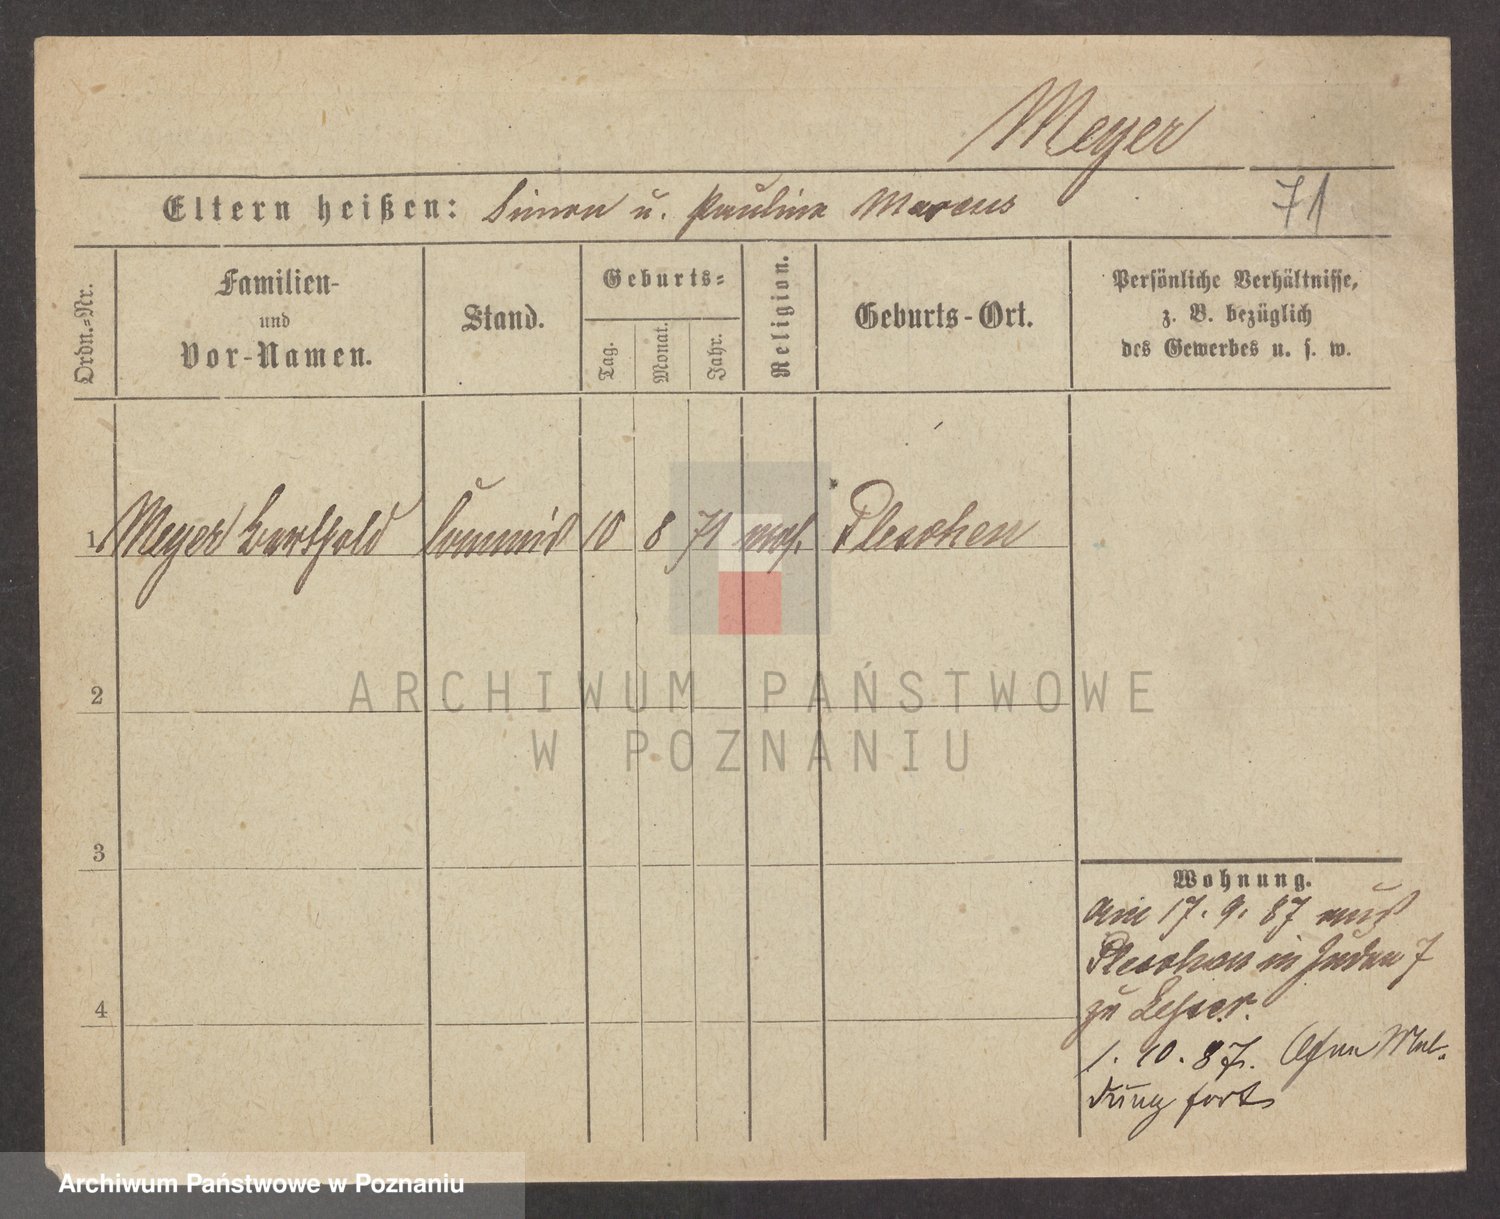 Meyer
Eltern heißen: Simon u. Pauline Marcus
71
Ordn.-Nr.
Familien-
und
Vor-Namen.
Stand.
Geburts-
Tag.
Monat.
Jahr.
Religion.
Geburts-Ort.
Persönliche Verhältnisse,
z. B. bezüglich
des Gewerbes u. s. w.
1 Meyer Berthold Commis 10 8 71 mos. Pleschen
2
3
4
Wohnung.
Am 17. 9. 87 aus
Pleschen in Juden 7
zu Lesser.
1. 10. 87. Ohne Mel-
dung fort
ARCHIWUM PAŃSTWOWE
W POZNANIU
Archiwum Państwowe w Poznaniu